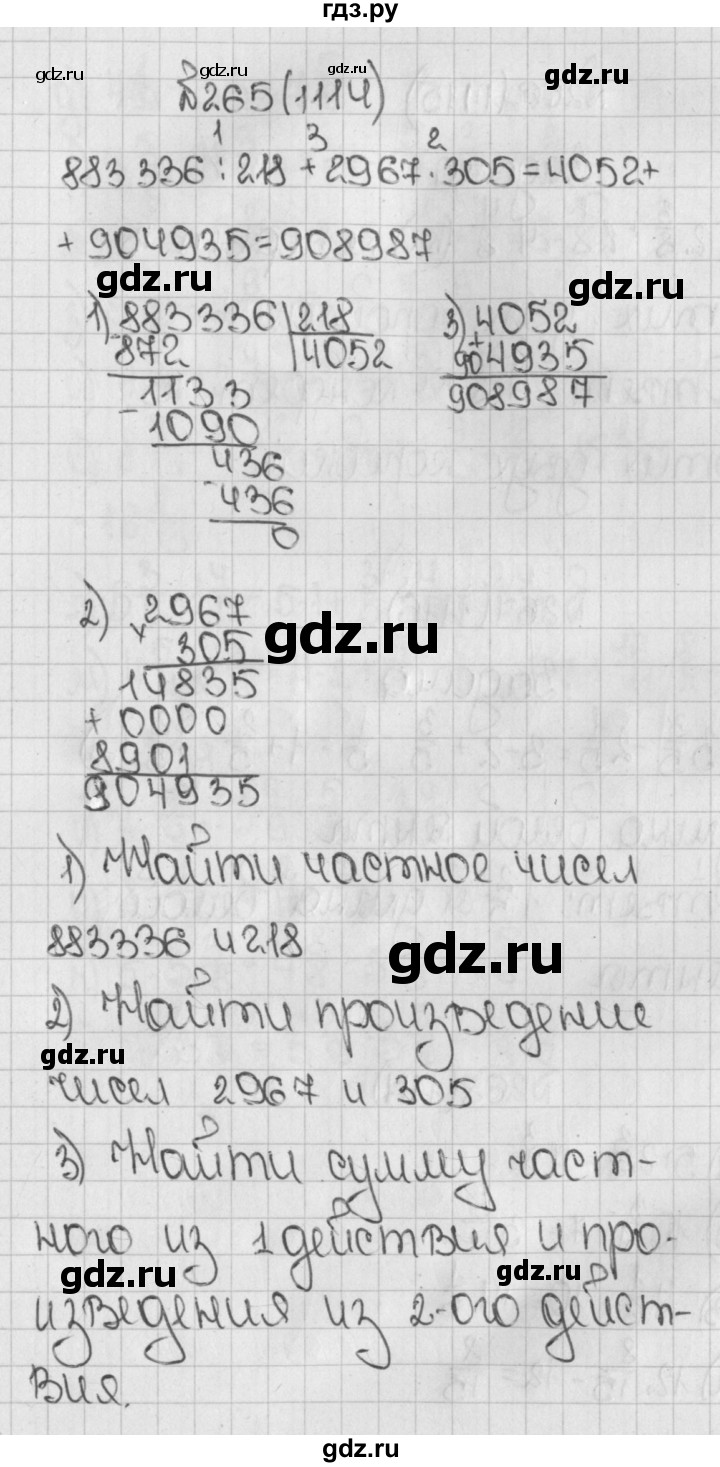 гдз.ру
gdz.ru gdz.ru gdz.ru gdz.ru
№265(1114)
1 3 2
883 336 : 218 + 2967 · 305 = 4052 +
+ 904935 = 908987
gdz.ru gdz.ru
1) 883336 218
- 872 4052
1133
- 1090
436
- 436
0
3) 4052
+ 904935
908987
2) 2967
× 305
gdz.ru
14835
+ 0000
8901
904935
1) Найти частное чисел
883336 и 218
gdz.ru
2) Найти произведение
gdz.ru
чисел 2967 и 305
3) Найти сумму част-
ного из 1 действия и про-
gdz.ru gdz.ru
изведения из 2-ого дейст-
вия.
gdz.ru